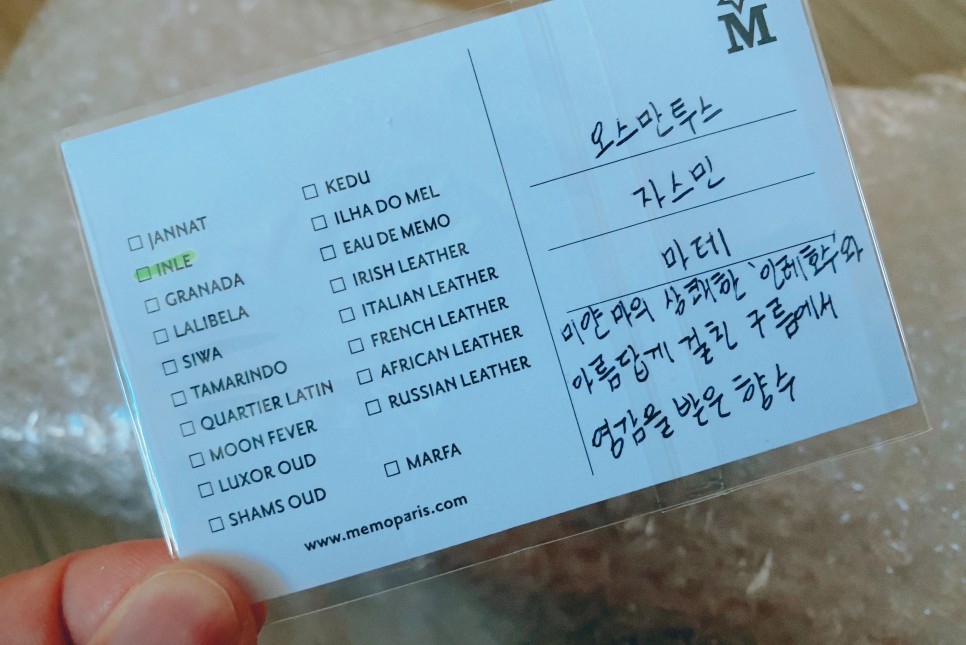 M
☐ JANNAT
☐ INLE
☐ GRANADA
☐ LALIBELA
☐ SIWA
☐ TAMARINDO
☐ QUARTIER LATIN
☐ MOON FEVER
☐ LUXOR OUD
☐ SHAMS OUD
☐ KEDU
☐ ILHA DO MEL
☐ EAU DE MEMO
☐ IRISH LEATHER
☐ ITALIAN LEATHER
☐ FRENCH LEATHER
☐ AFRICAN LEATHER
☐ RUSSIAN LEATHER
☐ MARFA
www.memoparis.com
오스만투스
자스민
마테
미얀마의 상쾌한 '인레호수'와
아름답게 걸린 구름에서
영감을 받은 향수